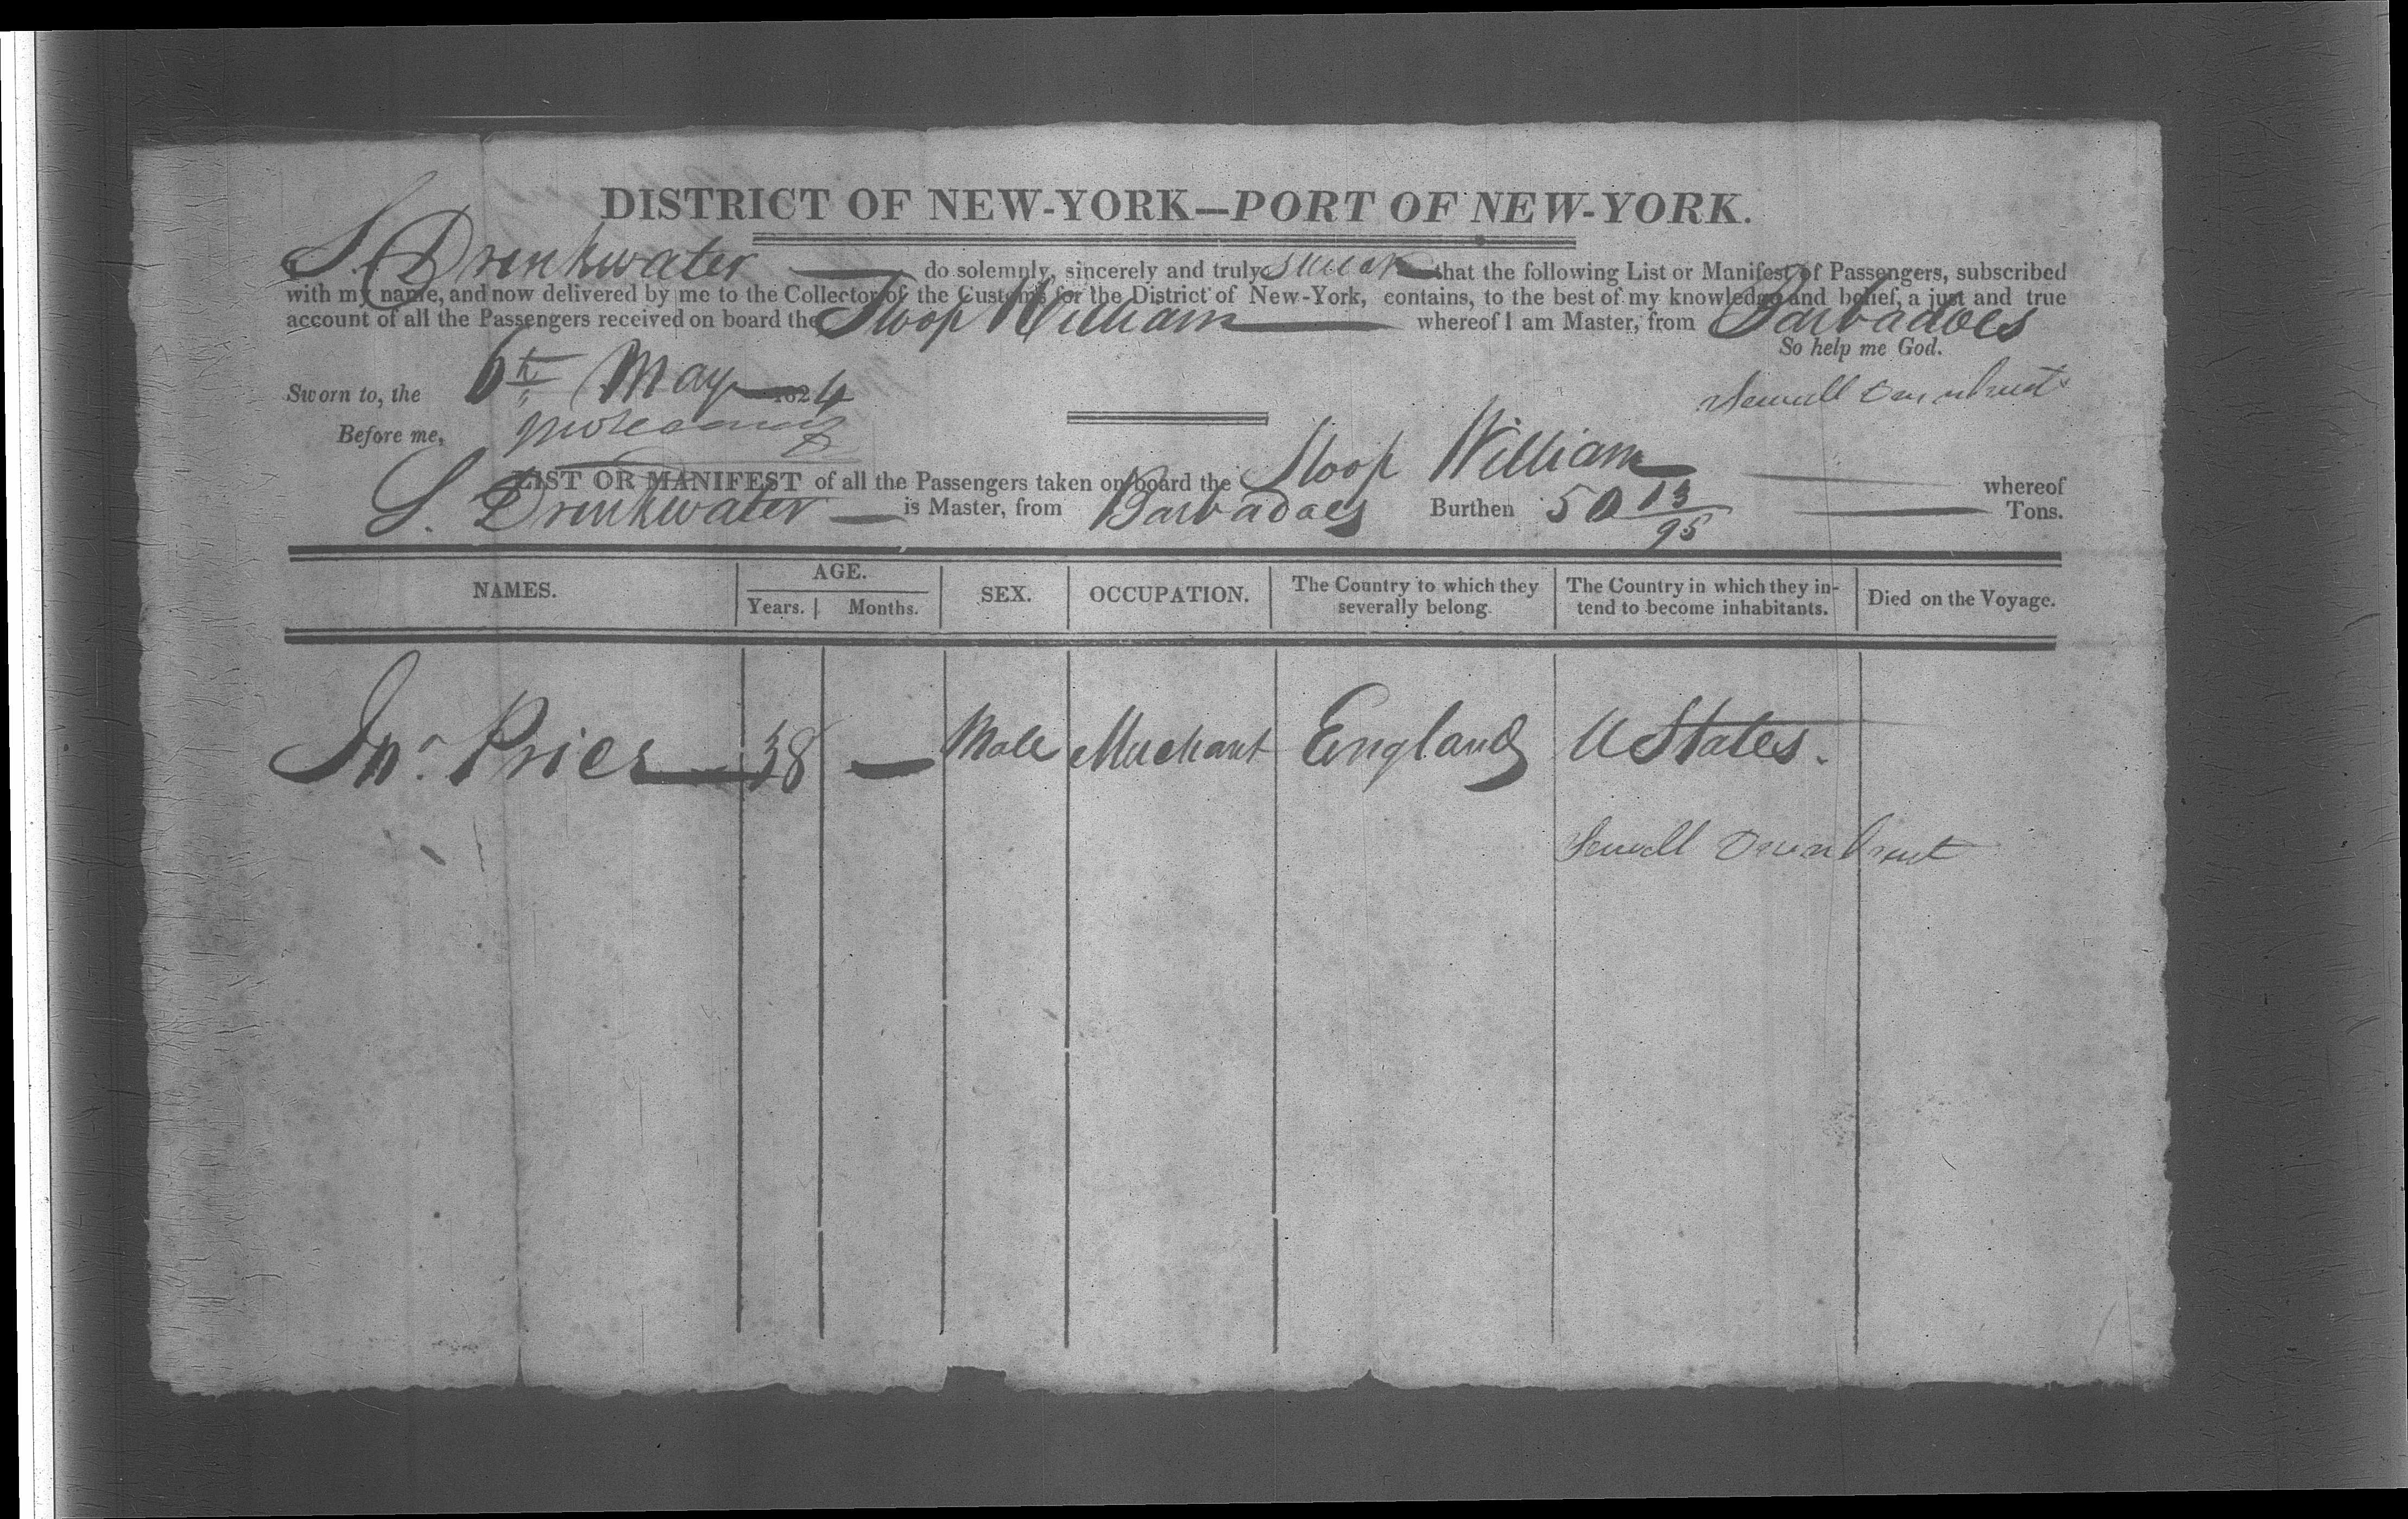 DISTRICT OF NEW-YORK—PORT OF NEW-YORK.
I, S. Drinkwater do solemnly, sincerely and truly swear that the following List or Manifest of Passengers, subscribed
with my name, and now delivered by me to the Collector of the Customs for the District of New-York, contains, to the best of my knowledge and belief, a just and true
account of all the Passengers received on board the Sloop William whereof I am Master, from Barbadoes
So help me God.
Sworn to, the 6th May 1824
Sewall
Before me,
LIST OR MANIFEST of all the Passengers taken on board the Sloop William whereof
S. Drinkwater is Master, from Barbadoes Burthen 50 13/95 Tons.
NAMES. AGE. Years. Months. SEX. OCCUPATION. The Country to which they severally belong. The Country in which they intend to become inhabitants. Died on the Voyage.
Jno. Price 38 — Male Merchant England U States.
Sewall